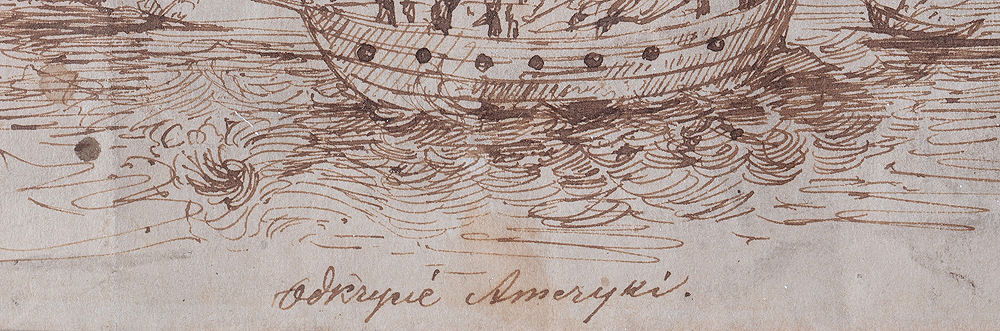 Odkrycié Ameryki.